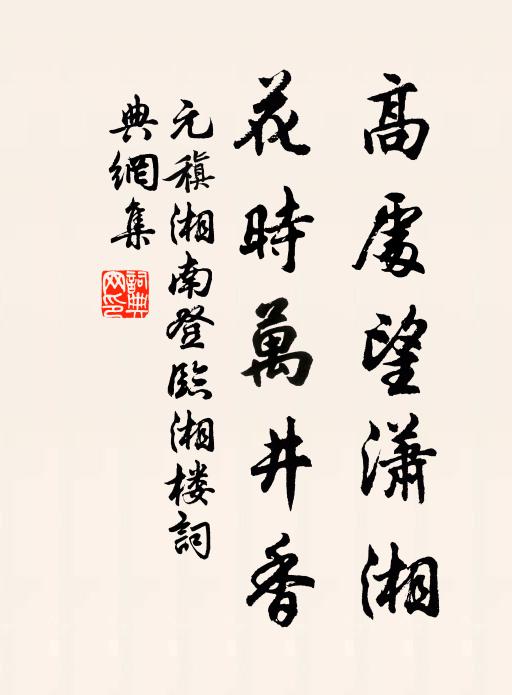 高處望瀟湘
花時萬井香
元稹湘南登臨湘楼詞
典網集
詞典
网印